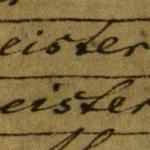 eister
eister